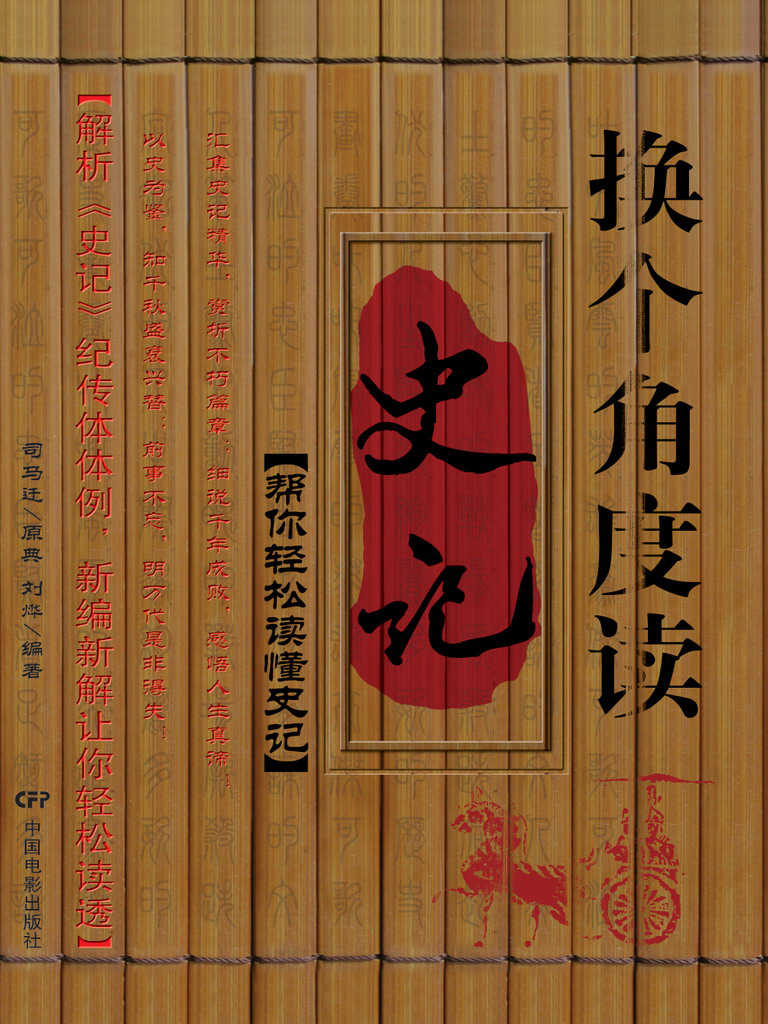 换个角度读
史记
【帮你轻松读懂史记】
汇集史记精华，赏析不朽篇章；细说千年成败，感悟人生真谛！
以史为鉴，知千秋盛衰兴替；前事不忘，明万代是非得失！
【解析《史记》纪传体体例，新编新解让你轻松读透】
司马迁\原典 刘烨\编著
CFP 中国电影出版社